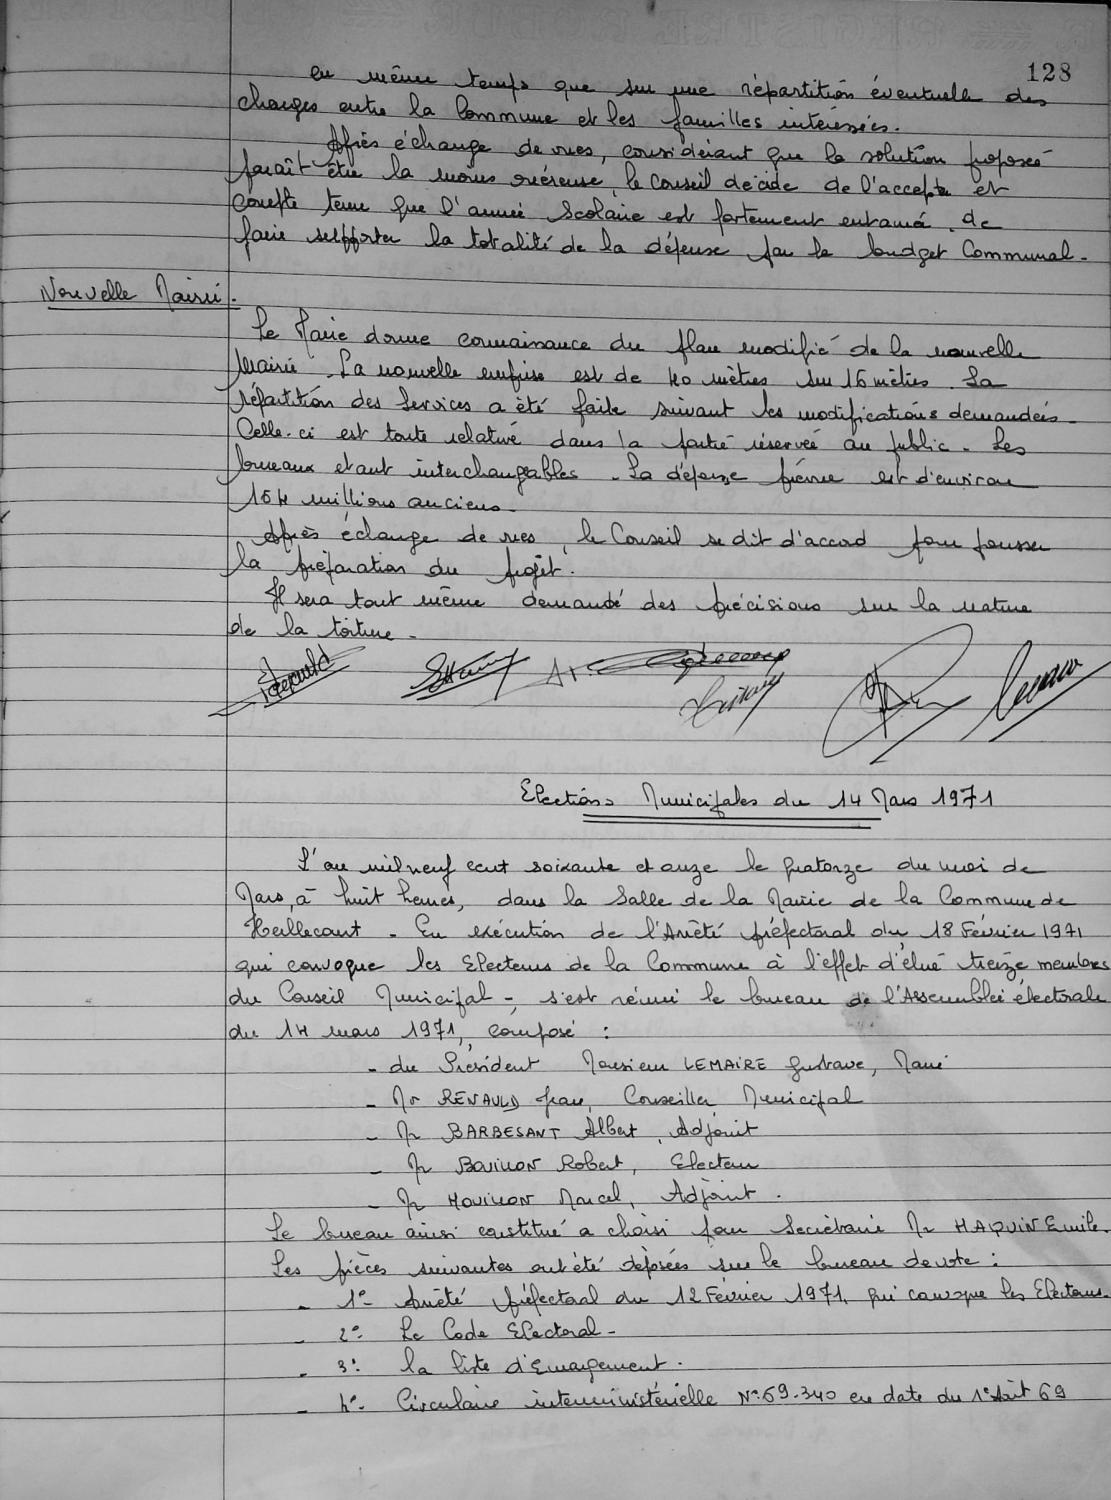 128
en même temps que sur une répartition éventuelle des
charges entre la Commune et les familles intéressées.
Après échange de vues, considérant que la solution proposée
paraît être la moins onéreuse, le Conseil décide de l'accepter et
compte tenu que l'année Scolaire est fortement entamée, de
faire supporter la totalité de la dépense par le budget Communal.
Nouvelle Mairie.
Le Maire donne connaissance du plan modifié de la nouvelle
Mairie. La nouvelle emprise est de 40 mètres sur 16 mètres. La
répartition des Services a été faite suivant les modifications demandées.
Celle-ci est toute relative dans la partie réservée au public. Les
bureaux étant interchangeables. La dépense prévue est d'environ
154 millions anciens.
Après échange de vues, le Conseil se dit d'accord pour pousser
la préparation du projet.
Il sera tout même demandé des précisions sur la nature
de la toiture.
Elections Municipales du 14 Mars 1971
L'an mil neuf cent soixante et onze le quatorze du moi de
Mars, à huit heures, dans la Salle de la Mairie de la Commune de
Heillecourt - En exécution de l'Arrêté préfectoral du 18 Février 1971
qui convoque les Electeurs de la Commune à l'effet d'élire treize membres
du Conseil Municipal - s'est réuni le bureau de l'Assemblée électorale
du 14 mars 1971, composé :
- du Président Monsieur LEMAIRE Gustave, Maire
- Mr RENAULD Jean, Conseiller Municipal
- Mr BARBESANT Albert, Adjoint
- Mr BOUILLON Robert, Electeur
- Mr MOUILLON Marcel, Adjoint.
Le bureau ainsi constitué a choisi pour Secrétaire Mr HAQUIN Emile.
Les pièces suivantes ont été déposées sur le bureau de vote :
- 1°- Arrêté préfectoral du 12 Février 1971, qui convoque les Electeurs.
- 2°- Le Code Electoral -
- 3°- la liste d'Emargement.
- 4°- Circulaire interministérielle N°-69-340 en date du 1° Août 69